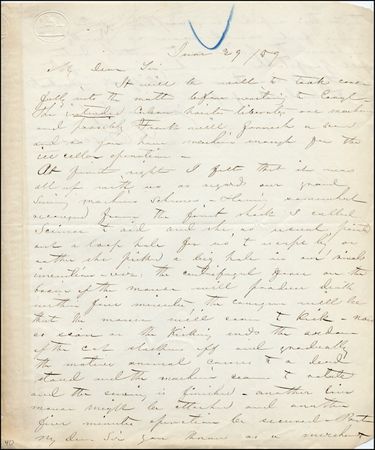 June 29/59
My Dear Sir
It will be well to look care
fully into the matter before writing to
The Cuban hauls liberates one machine
and possibly Frank will furnish a second
and so you have machines enough for the
ice cellar operations -
At first sight I felt that it was
all up with us as regards our grand
Swing machine schemes - Having somewhat
recovered from the first shock I called
Science to aid and she as usual points
out a loop hole for us to escape by or
rather she picked a big hole in our rivals
invention - viz: the centrifugal force on the
brain of the mouse will produce death
within five minutes, the consequence will be
that the mouse will cease to kick - now
as soon as the kicking ends the
of the cat slackens off and gradually
the motive animal comes to a dead
stand and the machine ceases to rotate
and the swing is finished - another live
mouse might be attached and another
five minutes operation be secured - But
My dear Sir you know as a merchant
40